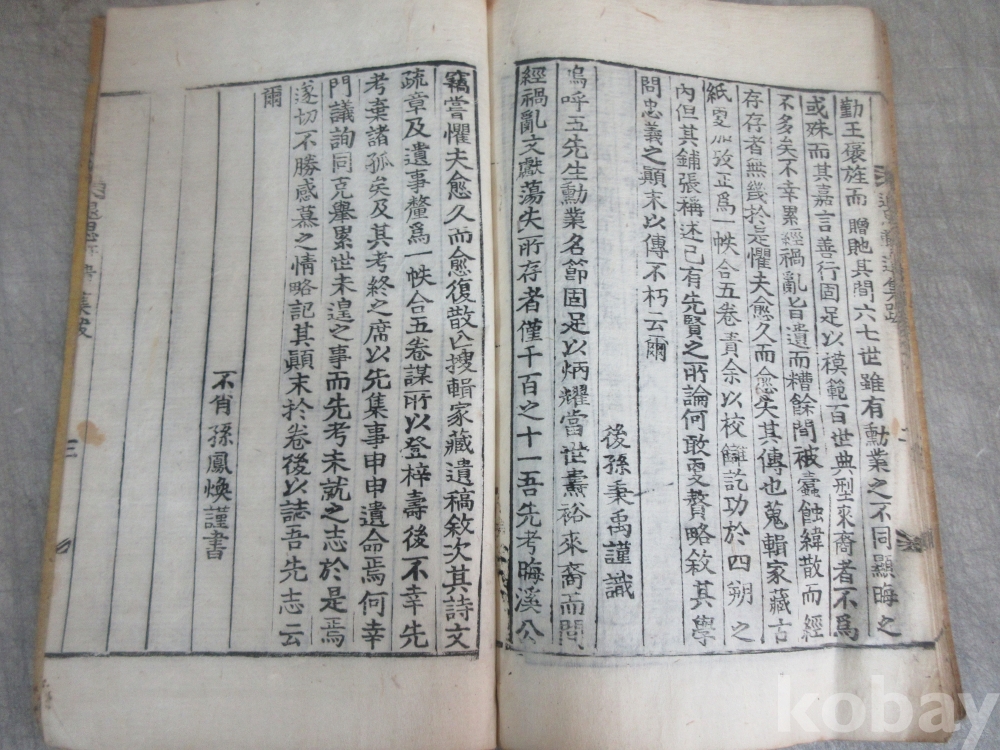 勤王褒旌而 贈貤其間六七世雖有勳業之不同顯晦之
或殊而其嘉言善行固足以模範百世典型來裔者不爲
不多矣不幸累經禍亂旨遺而糟餘間被蠹蝕緯散而經
存存者無幾於是懼夫愈久而愈失其傳也蒐輯家藏古
紙更加攷正爲一帙合五卷責余以校讎訖功於四朔之
內但其鋪張稱述已有先賢之所論何敢更贅略敘其學
問忠義之顚末以傳不朽云爾
後孫秉禹謹識
嗚呼五先生勳業名節固足以炳耀當世壽裕來裔而間
經禍亂文獻蕩失所存者僅千百之十一吾先考晦溪公
竊嘗懼夫愈久而愈復散亾搜輯家藏遺稿敘次其詩文
疏章及遺事釐爲一帙合五卷謀所以登梓壽後不幸先
考棄諸孤矣及其考終之席以先集事申申遺命焉何幸
門議詢同克擧累世未遑之事而先考未就之志於是焉
遂切不勝感慕之情略記其顚末於卷後以誌吾先志云
爾
不肖孫鳳煥謹書
三
kobay